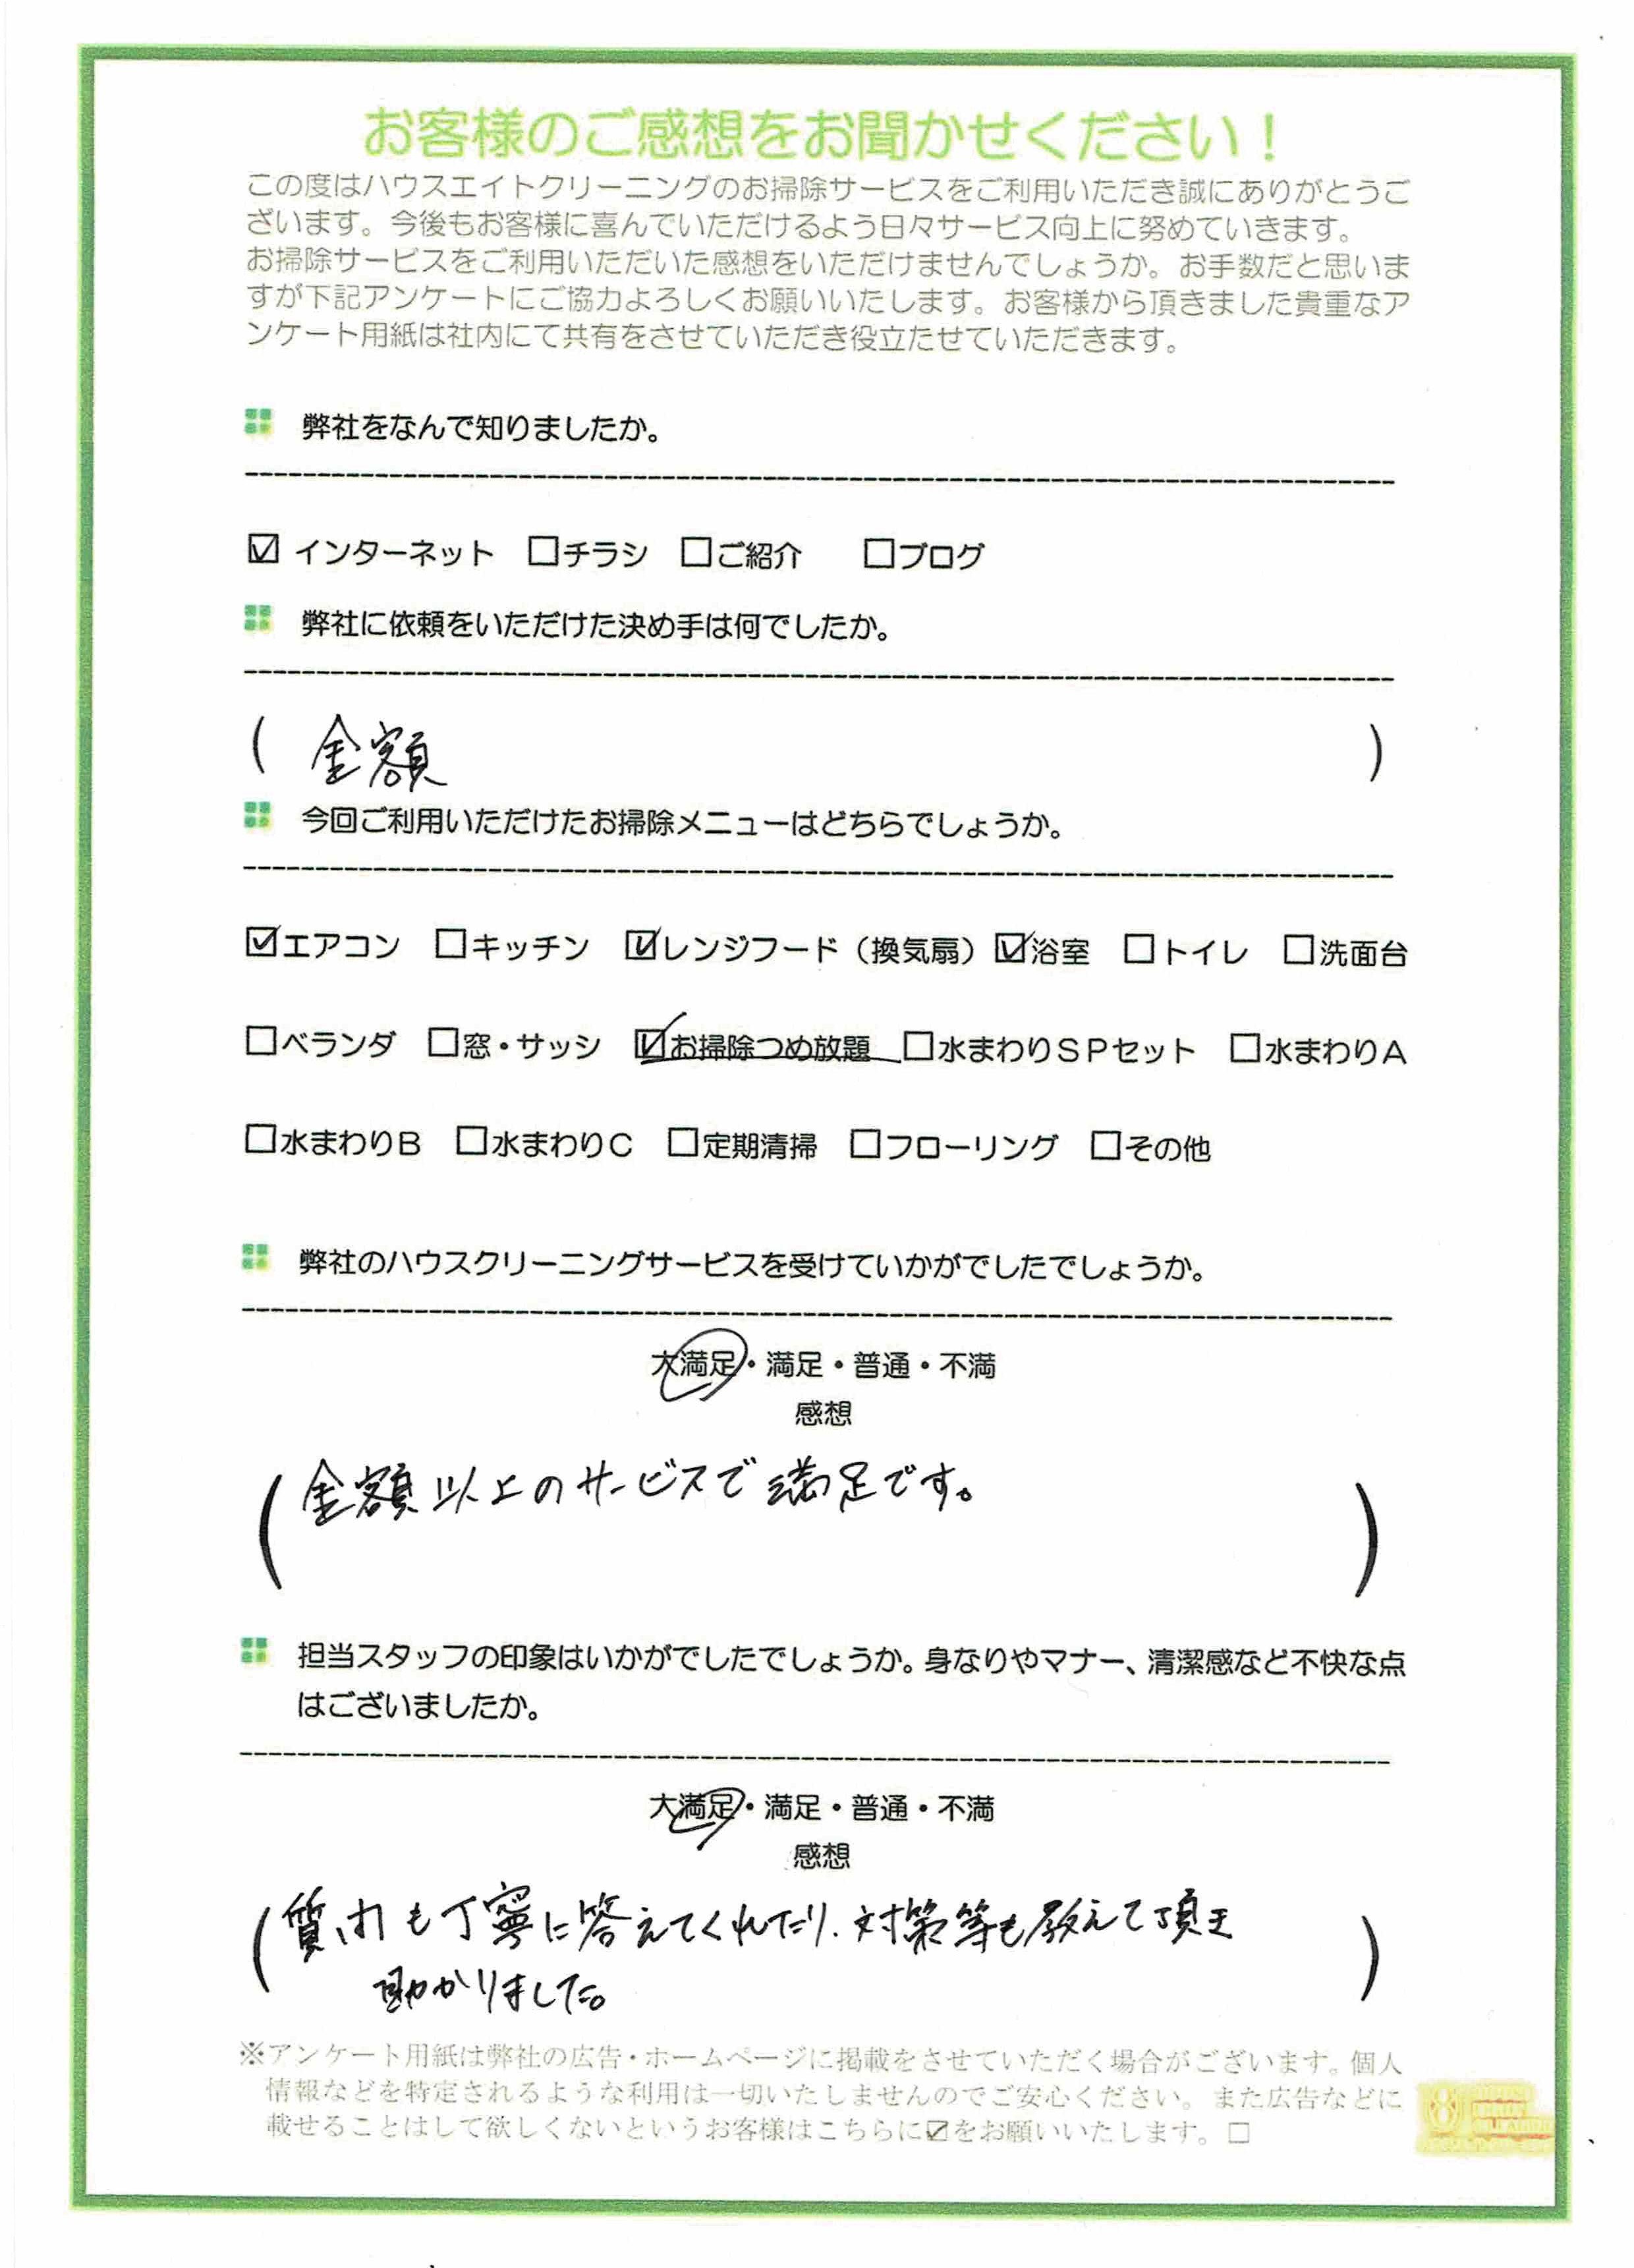 お客様のご感想をお聞かせください！
この度はハウスエイトクリーニングのお掃除サービスをご利用いただき誠にありがとうご
ざいます。今後もお客様に喜んでいただけるよう日々サービス向上に努めていきます。
お掃除サービスをご利用いただいた感想をいただけませんでしょうか。お手数だと思いま
すが下記アンケートにご協力よろしくお願いいたします。お客様から頂きました貴重なア
ンケート用紙は社内にて共有をさせていただき役立たせていただきます。
弊社をなんで知りましたか。
☑ インターネット □チラシ □ご紹介 □ブログ
弊社に依頼をいただけた決め手は何でしたか。
( 金額 )
今回ご利用いただけたお掃除メニューはどちらでしょうか。
☑エアコン □キッチン ☑レンジフード（換気扇）☑浴室 □トイレ □洗面台
□ベランダ □窓・サッシ ☑お掃除つめ放題 □水まわりＳＰセット □水まわりＡ
□水まわりＢ □水まわりＣ □定期清掃 □フローリング □その他
弊社のハウスクリーニングサービスを受けていかがでしたでしょうか。
大満足・満足・普通・不満
感想
( 金額以上のサービスで満足です。 )
担当スタッフの印象はいかがでしたでしょうか。身なりやマナー、清潔感など不快な点
はございましたか。
大満足・満足・普通・不満
感想
( 質問も丁寧に答えてくれたり、対策等も教えて頂き
助かりました。 )
※アンケート用紙は弊社の広告・ホームページに掲載をさせていただく場合がございます。個人
情報などを特定されるような利用は一切いたしませんのでご安心ください。また広告などに
載せることはして欲しくないというお客様はこちらに☑をお願いいたします。□